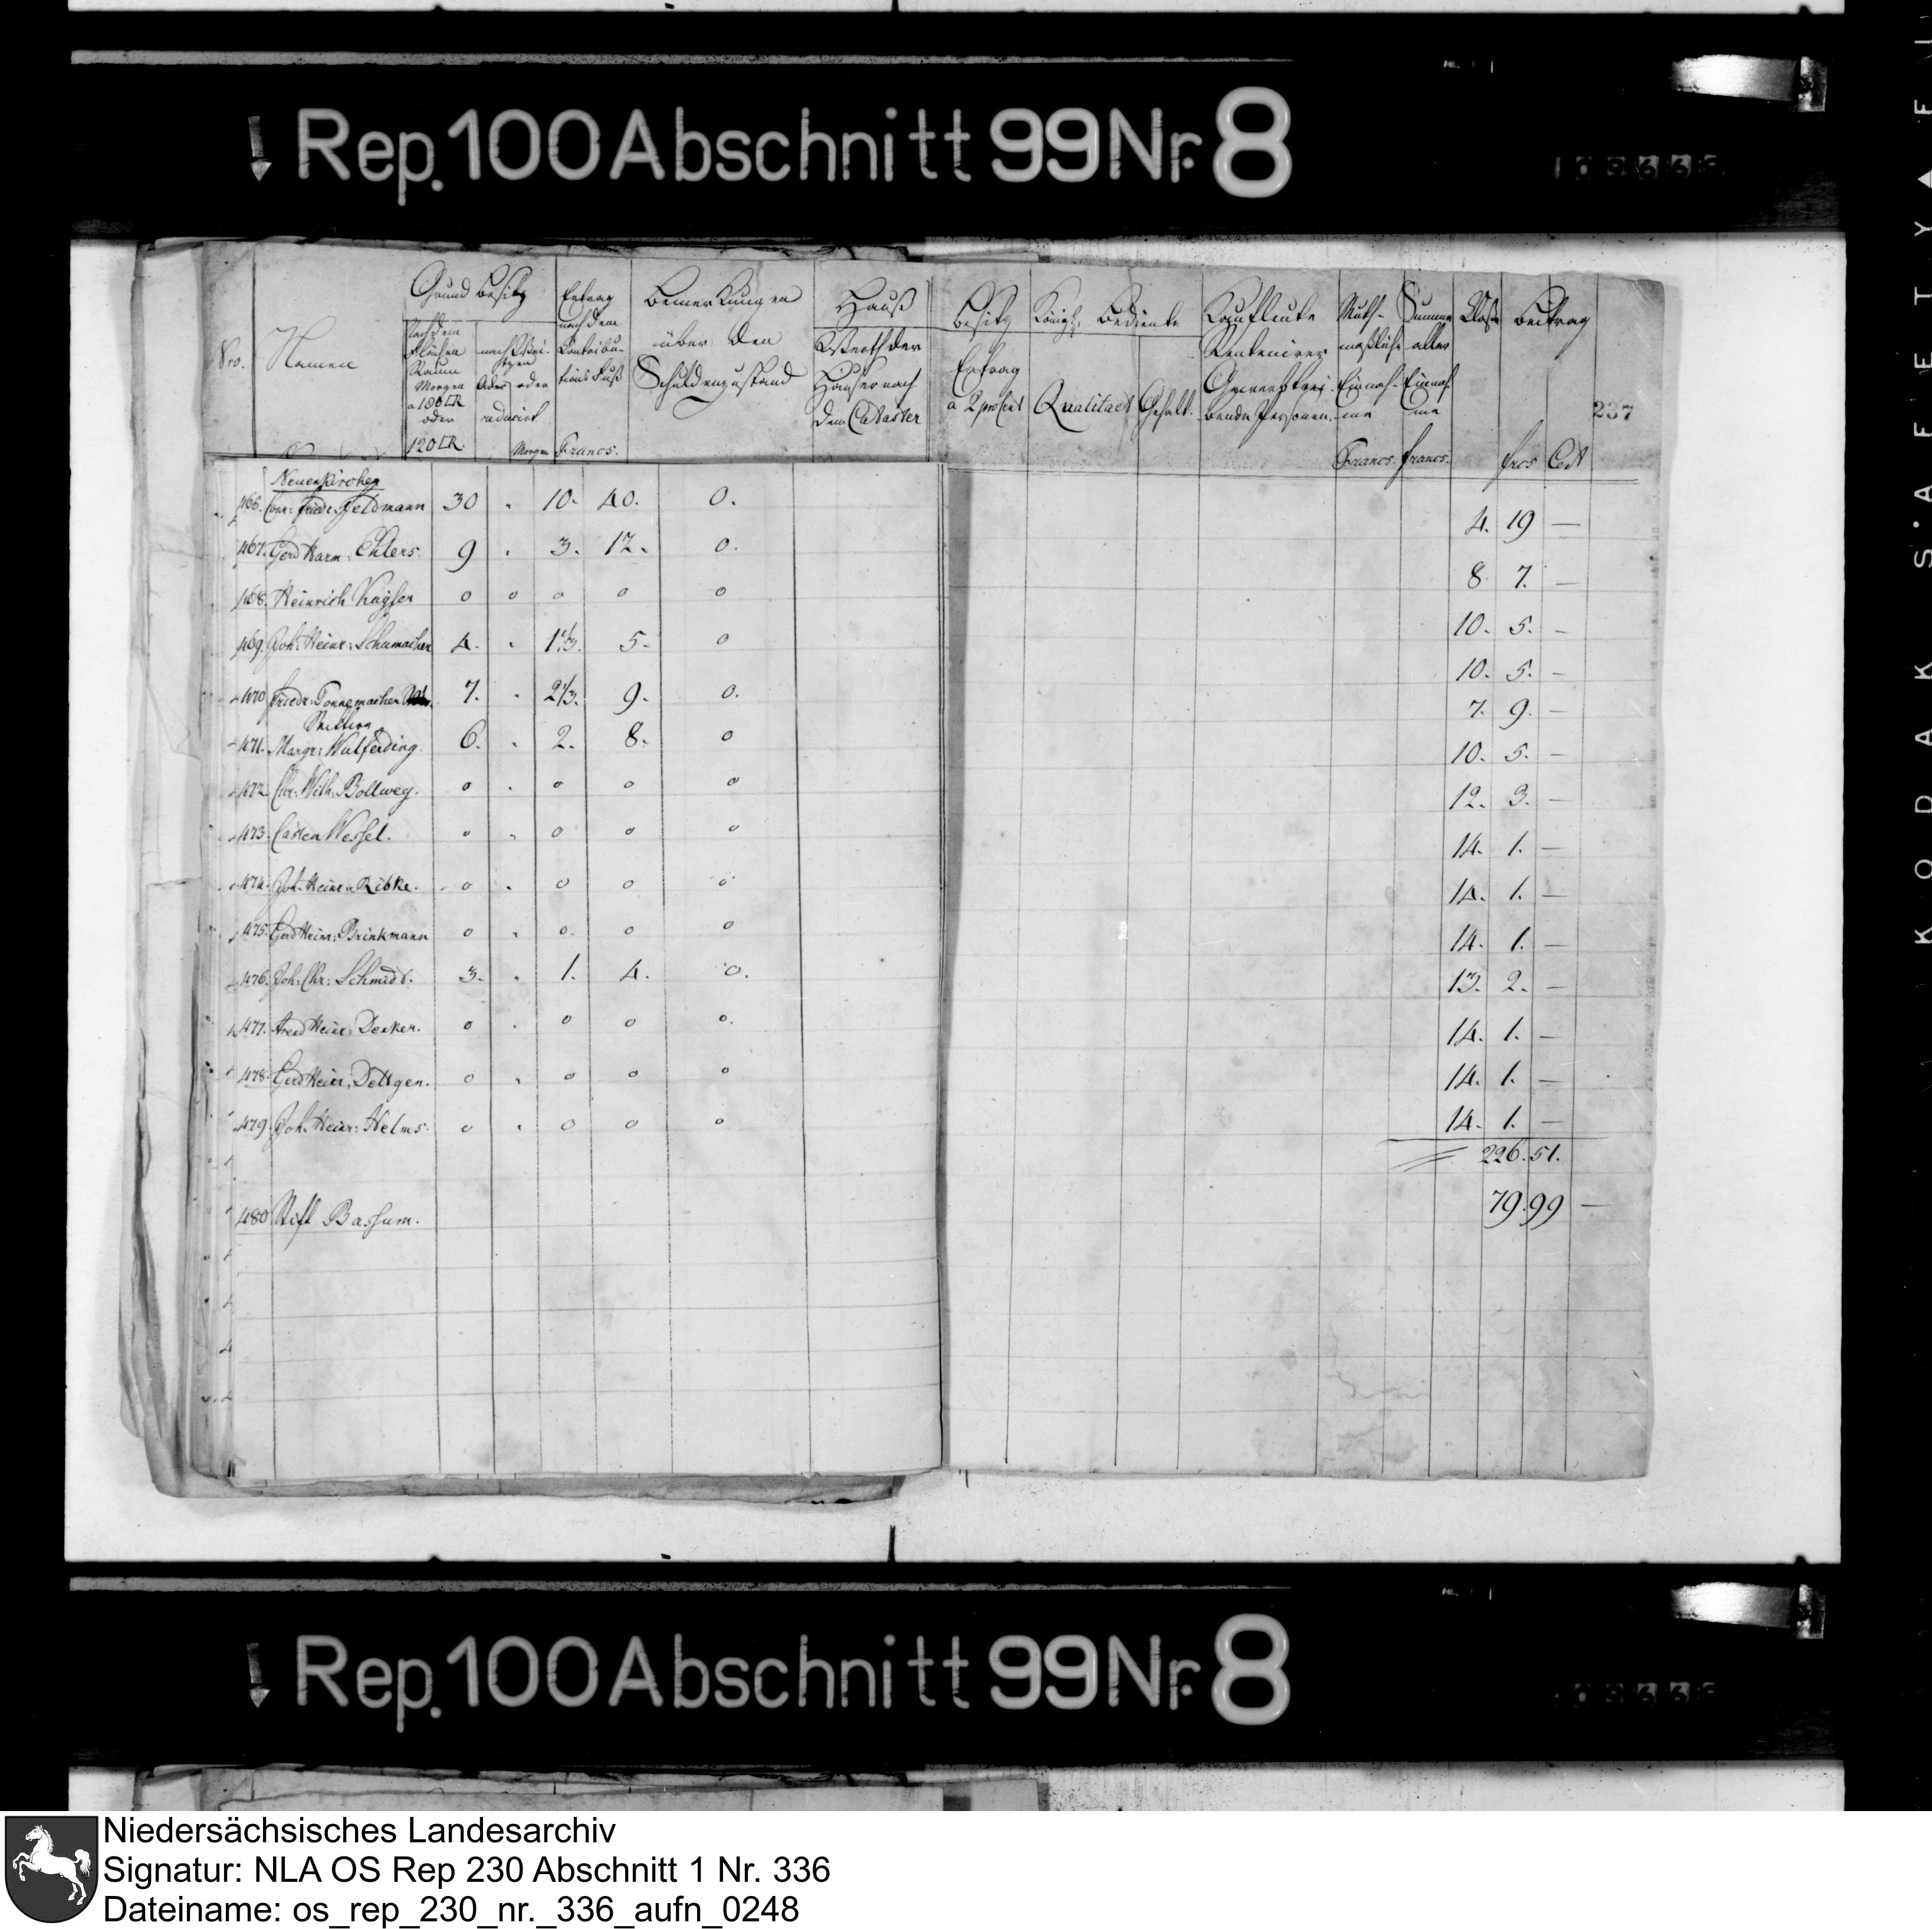 Rep. 100 Abschnitt 99 Nr. 8
Nro. Namen Grund Besitz
nach dem Flächen Raum Morgen a 180 □R oder 120 □R.
oder reducirt Morgen
Ertrag nach dem Contributions Fuß Francs.
Bemerkungen über den Schuldenzustand
Hauß Besitz
Werth der Häuser nach dem Cadaster
Ertrag a 2 procent
Königl. Bediente
Qualitaet Gehalt.
Kaufleute Rentenirer Gewerbtreibende Personen.
Muthmaßliche Einnahme Francs.
Summe aller Einnahme francs.
Classe Beitrag
frcs Cent
237
Neuenkirchen
466. Conr: Friedr: Feldmann 30 10. 40. 0. 4. 19 —
467. Gerd Harm: Ehlers. 9 3. 12. 0. 8. 7. —
468. Heinrich Kayser 0 0 0 0 0 10. 5. —
469. Joh: Heinr: Schumacher 4. 1 1/3. 5. 0 10. 5. —
470 Friedr: Tonnemacher 7. 2 1/3. 9. 0. 7. 9. —
471. Margr: Wulferding. 6. 2. 8. 0 10. 5. —
472. Chr: Wilh: Bollweg. 0 0 0 0 12. 3. —
473. Casten Wessel. 0 0 0 0 14. 1. —
474. Joh. Heinr: Ribke. 0 0 0 0 14. 1. —
475. Gerd Heinr: Brinkmann 0 0. 0 0 14. 1. —
476. Joh: Chr: Schmidt. 3. 1. 4. 0. 13. 2. —
477. Arend Heinr: Denker. 0 0 0 0. 14. 1. —
478. Gerd Heinr: Dettgen. 0 0 0 0 14. 1. —
479. Joh. Heinr: Helms. 0 0 0 0 14. 1. —
226. 51.
480 Stift Bassum. 79. 99 —
Rep. 100 Abschnitt 99 Nr. 8
KODAK SAFETY
Niedersächsisches Landesarchiv
Signatur: NLA OS Rep 230 Abschnitt 1 Nr. 336
Dateiname: os_rep_230_nr._336_aufn_0248